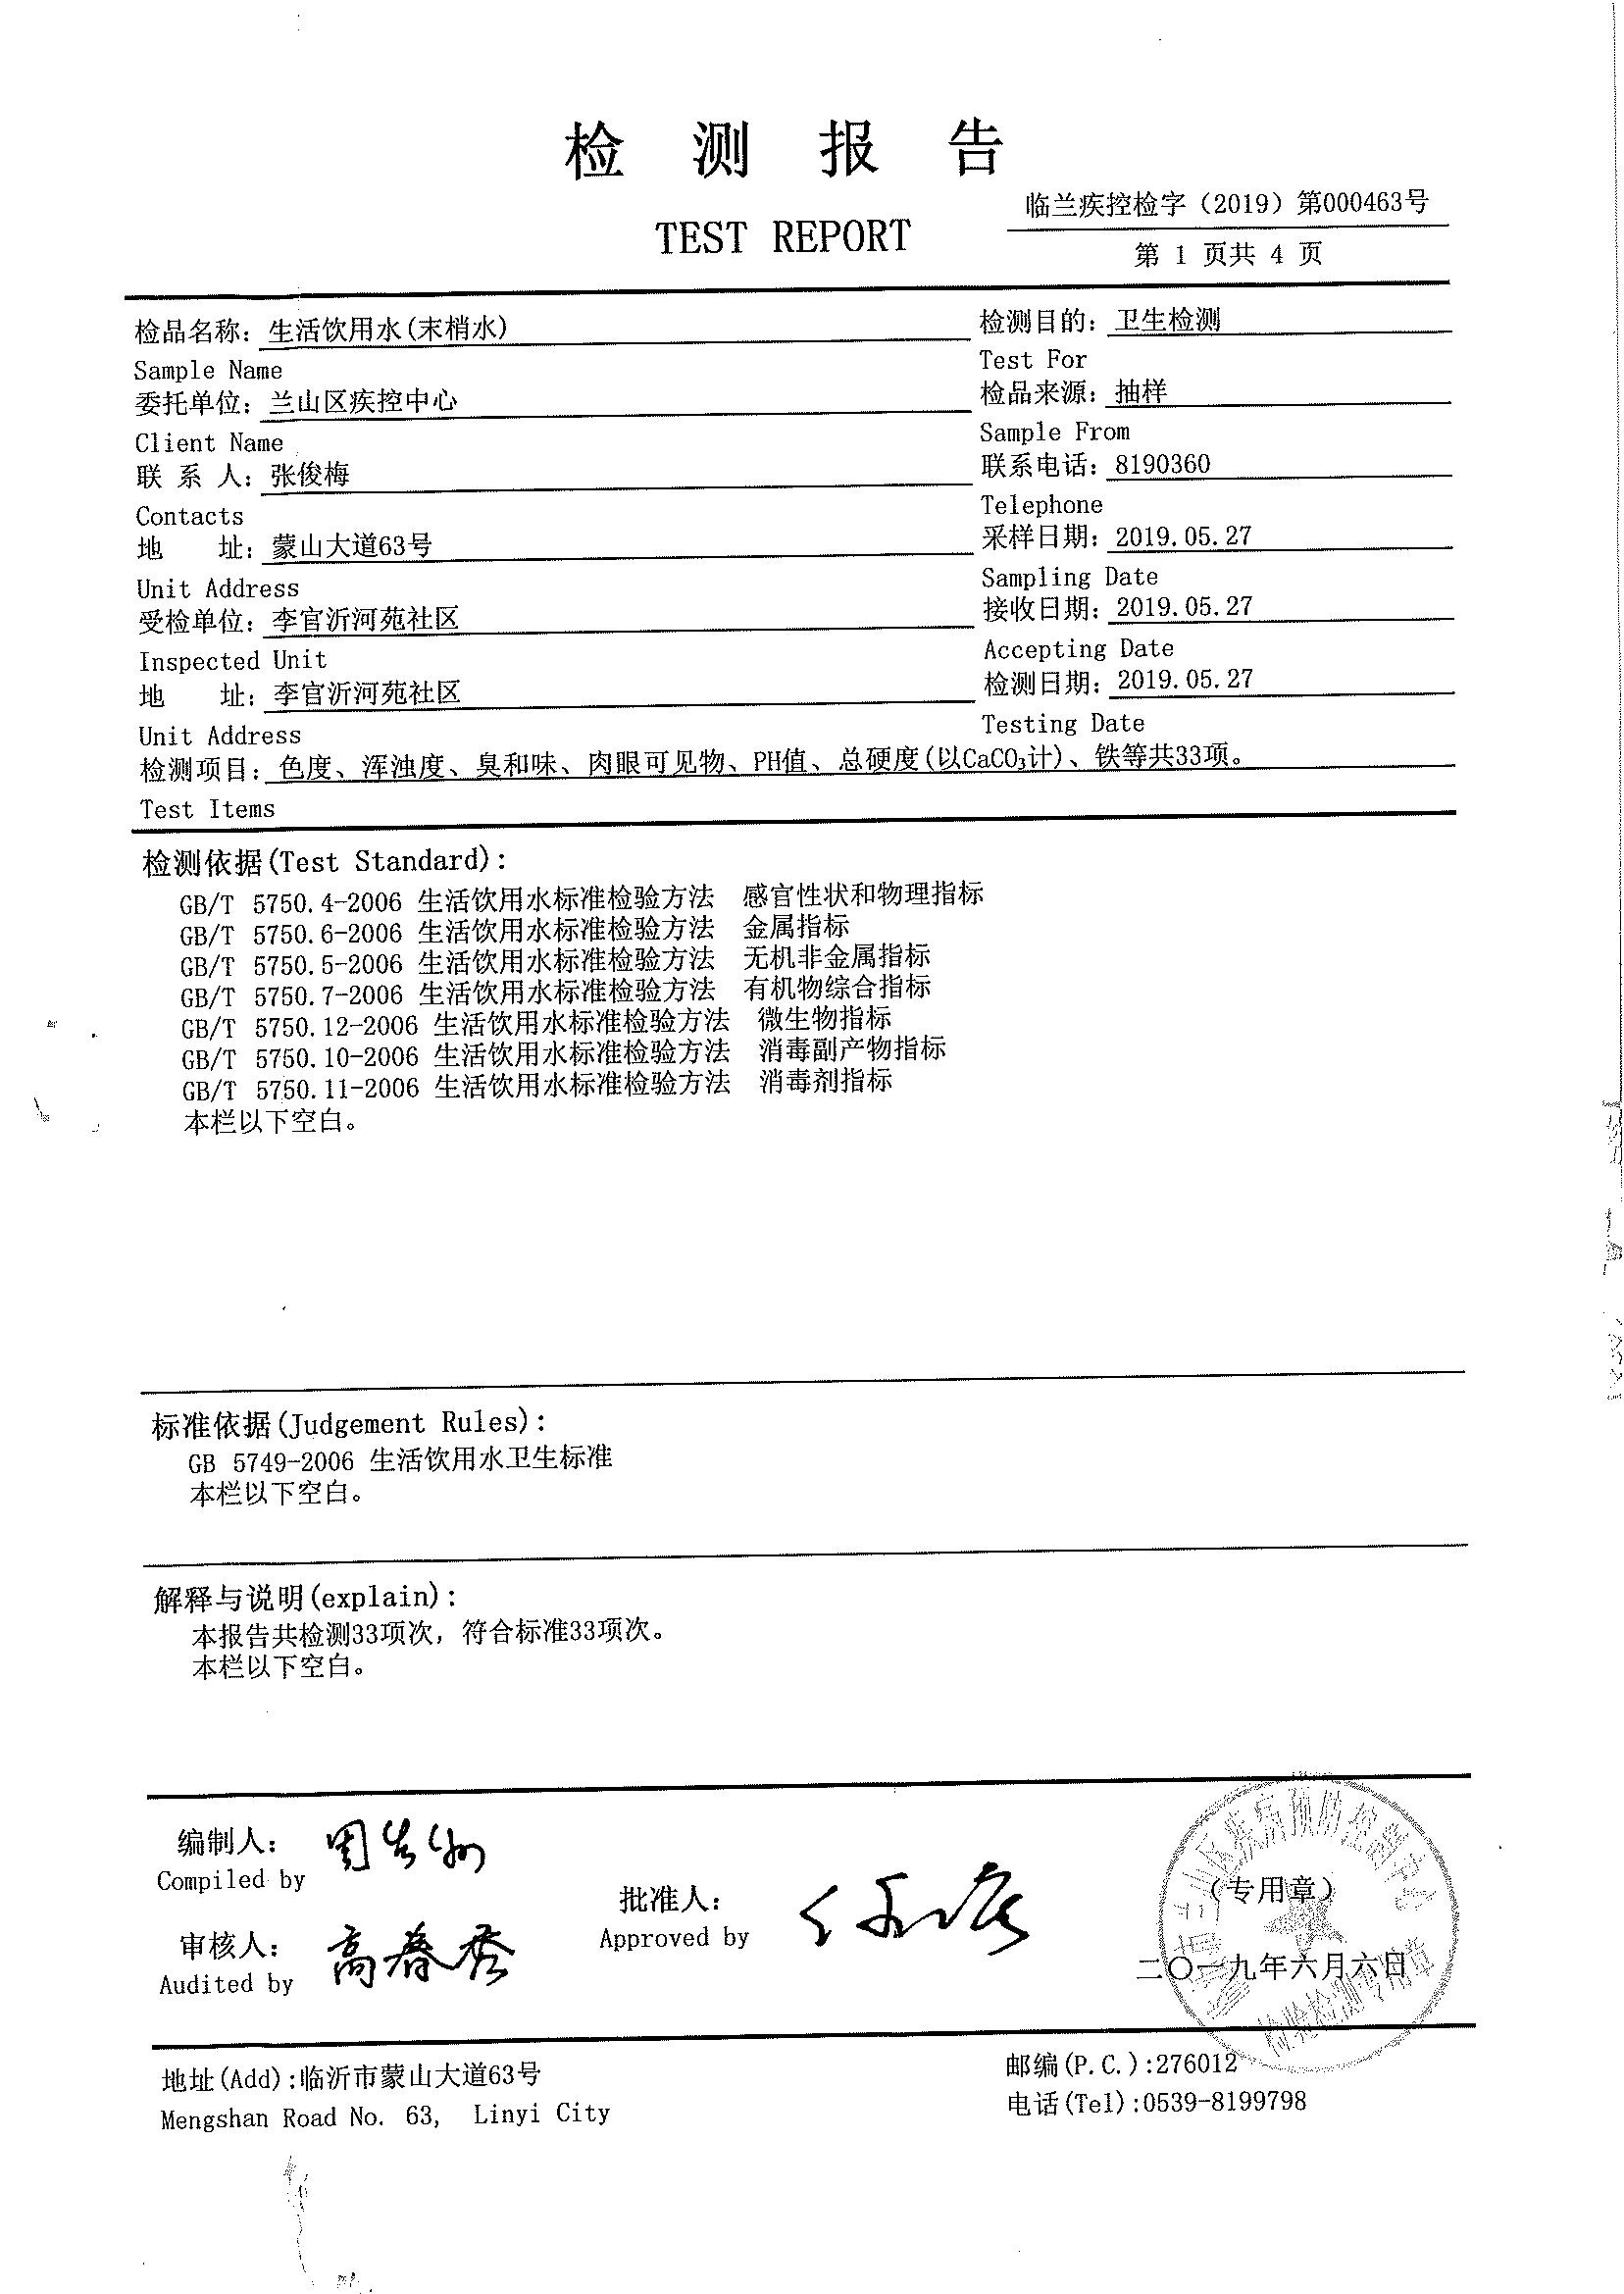 检 测 报 告
TEST REPORT
临兰疾控检字（2019）第000463号
第 1 页共 4 页
检品名称：生活饮用水(末梢水)
检测目的：卫生检测
Sample Name
Test For
委托单位：兰山区疾控中心
检品来源：抽样
Client Name
Sample From
联 系 人：张俊梅
联系电话：8190360
Contacts
Telephone
地 址：蒙山大道63号
采样日期：2019.05.27
Unit Address
Sampling Date
受检单位：李官沂河苑社区
接收日期：2019.05.27
Inspected Unit
Accepting Date
地 址：李官沂河苑社区
检测日期：2019.05.27
Unit Address
Testing Date
检测项目：色度、浑浊度、臭和味、肉眼可见物、PH值、总硬度(以CaCO₃计)、铁等共33项。
Test Items
检测依据(Test Standard)：
GB/T 5750.4-2006 生活饮用水标准检验方法 感官性状和物理指标
GB/T 5750.6-2006 生活饮用水标准检验方法 金属指标
GB/T 5750.5-2006 生活饮用水标准检验方法 无机非金属指标
GB/T 5750.7-2006 生活饮用水标准检验方法 有机物综合指标
GB/T 5750.12-2006 生活饮用水标准检验方法 微生物指标
GB/T 5750.10-2006 生活饮用水标准检验方法 消毒副产物指标
GB/T 5750.11-2006 生活饮用水标准检验方法 消毒剂指标
本栏以下空白。
标准依据(Judgement Rules)：
GB 5749-2006 生活饮用水卫生标准
本栏以下空白。
解释与说明(explain)：
本报告共检测33项次，符合标准33项次。
本栏以下空白。
编制人：
Compiled by
批准人：
Approved by
审核人：高春秀
Audited by
（专用章）
二〇一九年六月六日
兰山区疾病预防控制中心
检验检测专用章
地址(Add)：临沂市蒙山大道63号
邮编(P.C.)：276012
Mengshan Road No. 63, Linyi City
电话(Tel)：0539-8199798